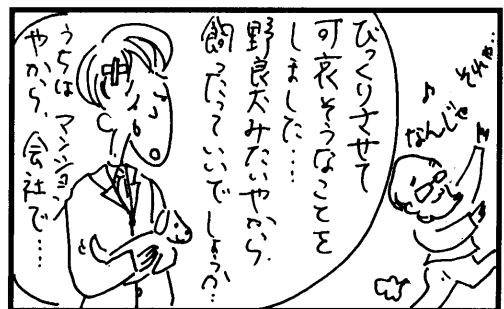 それゃ…
♪
なんじゃ
びっくりさせて
可哀そうなことを
しました…
野良犬みたいやから
飼ったっていいでしょうか…
うちはマンション
やから、会社で……